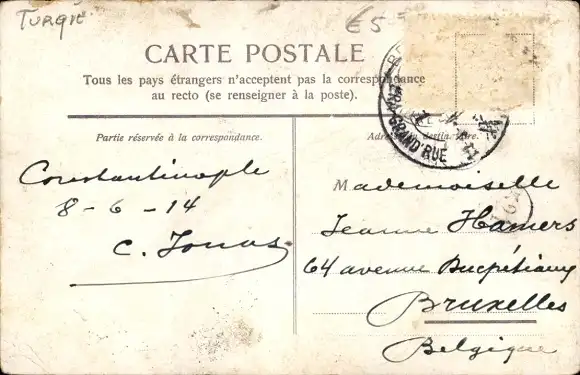 TURQIE
€5
CARTE POSTALE
Tous les pays étrangers n'acceptent pas la correspondance
au recto (se renseigner à la poste).
GRAND'RUE
Partie réservée à la correspondance.
Adresse du destinataire.
Constantinople
8-6-14
C. Jonas
Mademoiselle
Jeanne Hamers
64 avenue Ducpétiaux
Bruxelles
Belgique